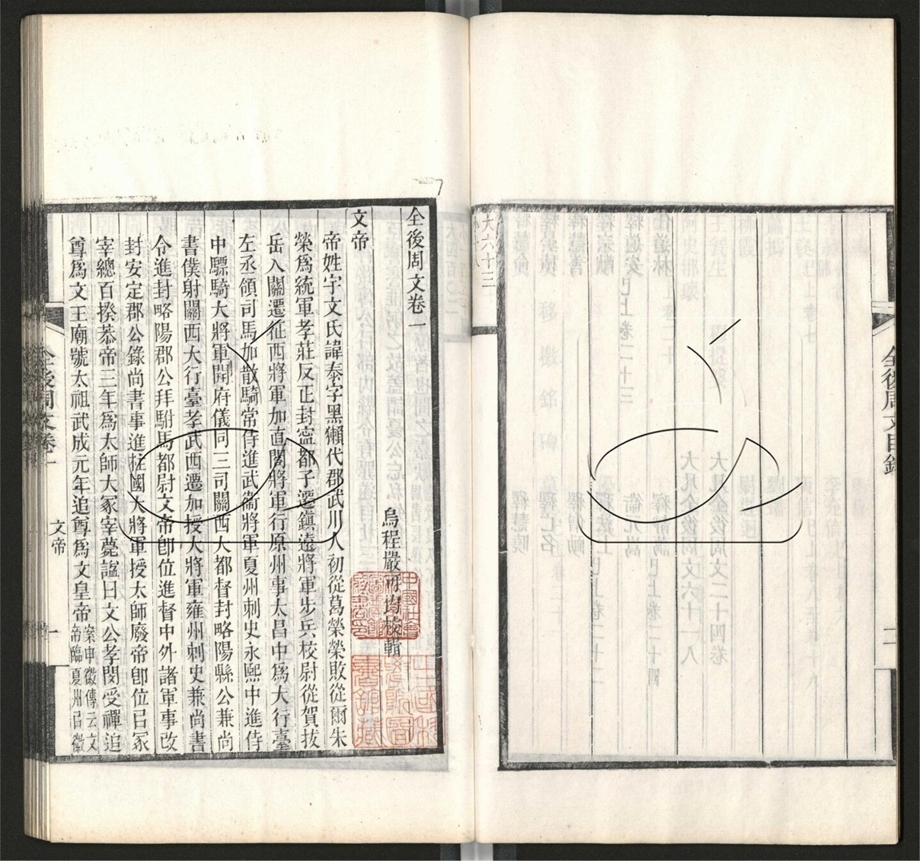 全後周文目錄
二
全後周文卷一
烏程嚴可均校輯
文帝
帝姓宇文氏諱泰字黑獺代郡武川人初從葛榮榮敗從爾朱
榮爲統軍孝莊反正封寧都子遷鎮遠將軍步兵校尉從賀拔
岳入關遷征西將軍加直閤將軍行原州事太昌中爲大行臺
左丞領司馬加散騎常侍進武衞將軍夏州刺史永熙中進侍
中驃騎大將軍開府儀同三司關西大都督封略陽縣公兼尚
書僕射關西大行臺孝武西遷加授大將軍雍州刺史兼尚書
令進封略陽郡公拜駙馬都尉文帝卽位進督中外諸軍事改
封安定郡公錄尚書事進柱國大將軍授太師廢帝卽位㠯冢
宰總百揆恭帝三年爲太師大冢宰薨諡曰文公孝閔受禪追
尊爲文王廟號太祖武成元年追尊爲文皇帝案申徽傳云文
帝臨夏州㠯徽
全後周文卷一
文帝
一